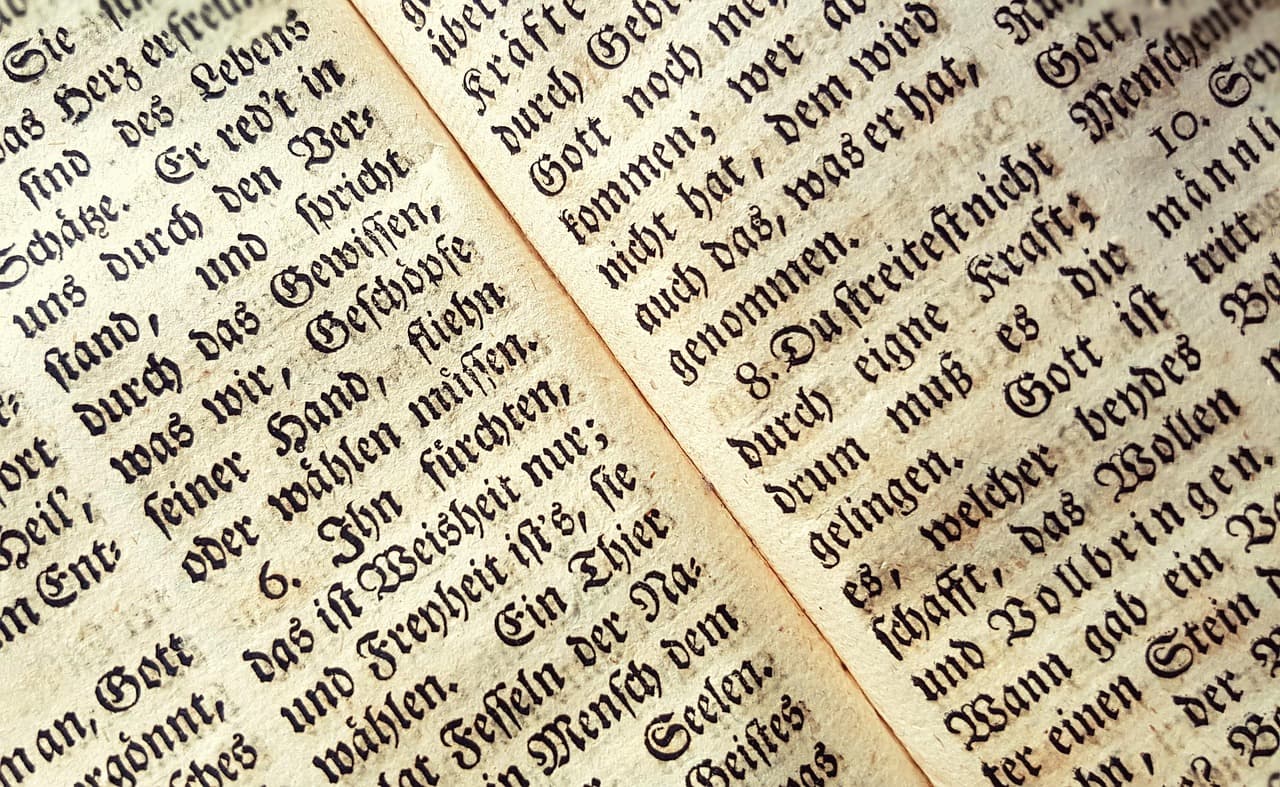 Sie
das Herz erfreun
sind des Lebens
Schätze. Er red't in
uns durch den Ver⸗
stand, und spricht
durch das Gewissen,
was wir, Geschöpfe
seiner Hand, fliehn
oder wählen müssen.
6. Ihn fürchten,
das ist Weisheit nur;
und Freyheit ist's, sie
wählen. Ein Thier
Fesseln der Na⸗
Mensch dem
Seelen.
Geistes
Heil',
Ent⸗
man, Gott
über
Kräfte
durch Geb
Gott noch
kommen; wer
nicht hat, dem wird
auch das, was er hat,
genommen.
8. Du streitest nicht
durch eigne Kraft;
drum muß es dir
gelingen. Gott ist
es, welcher beydes
schafft, das Wollen
und Vollbringen.
Wann gab ein
ter einen Stein
der
Gott,
Menschen
10.
männli
tritt